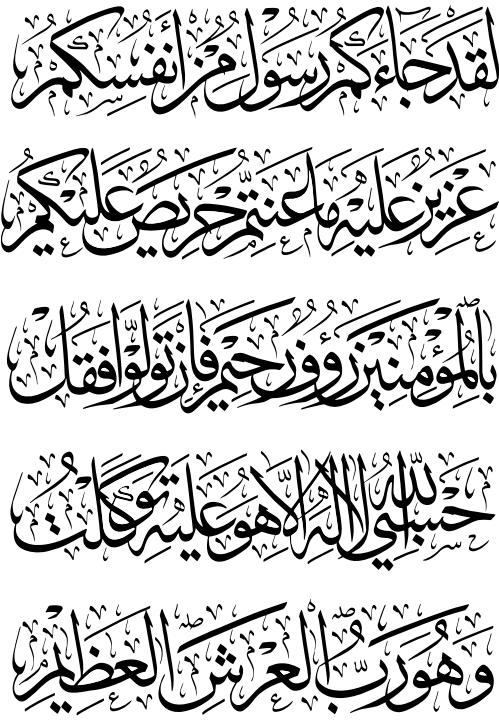 لَقَدْ جَاءَكُمْ رَسُولٌ مِنْ أَنْفُسِكُمْ
عَزِيزٌ عَلَيْهِ مَا عَنِتُّمْ حَرِيصٌ عَلَيْكُمْ
بِالْمُؤْمِنِينَ رَءُوفٌ رَحِيمٌ فَإِنْ تَوَلَّوْا فَقُلْ
حَسْبِيَ اللَّهُ لَا إِلَهَ إِلَّا هُوَ عَلَيْهِ تَوَكَّلْتُ
وَهُوَ رَبُّ الْعَرْشِ الْعَظِيمِ